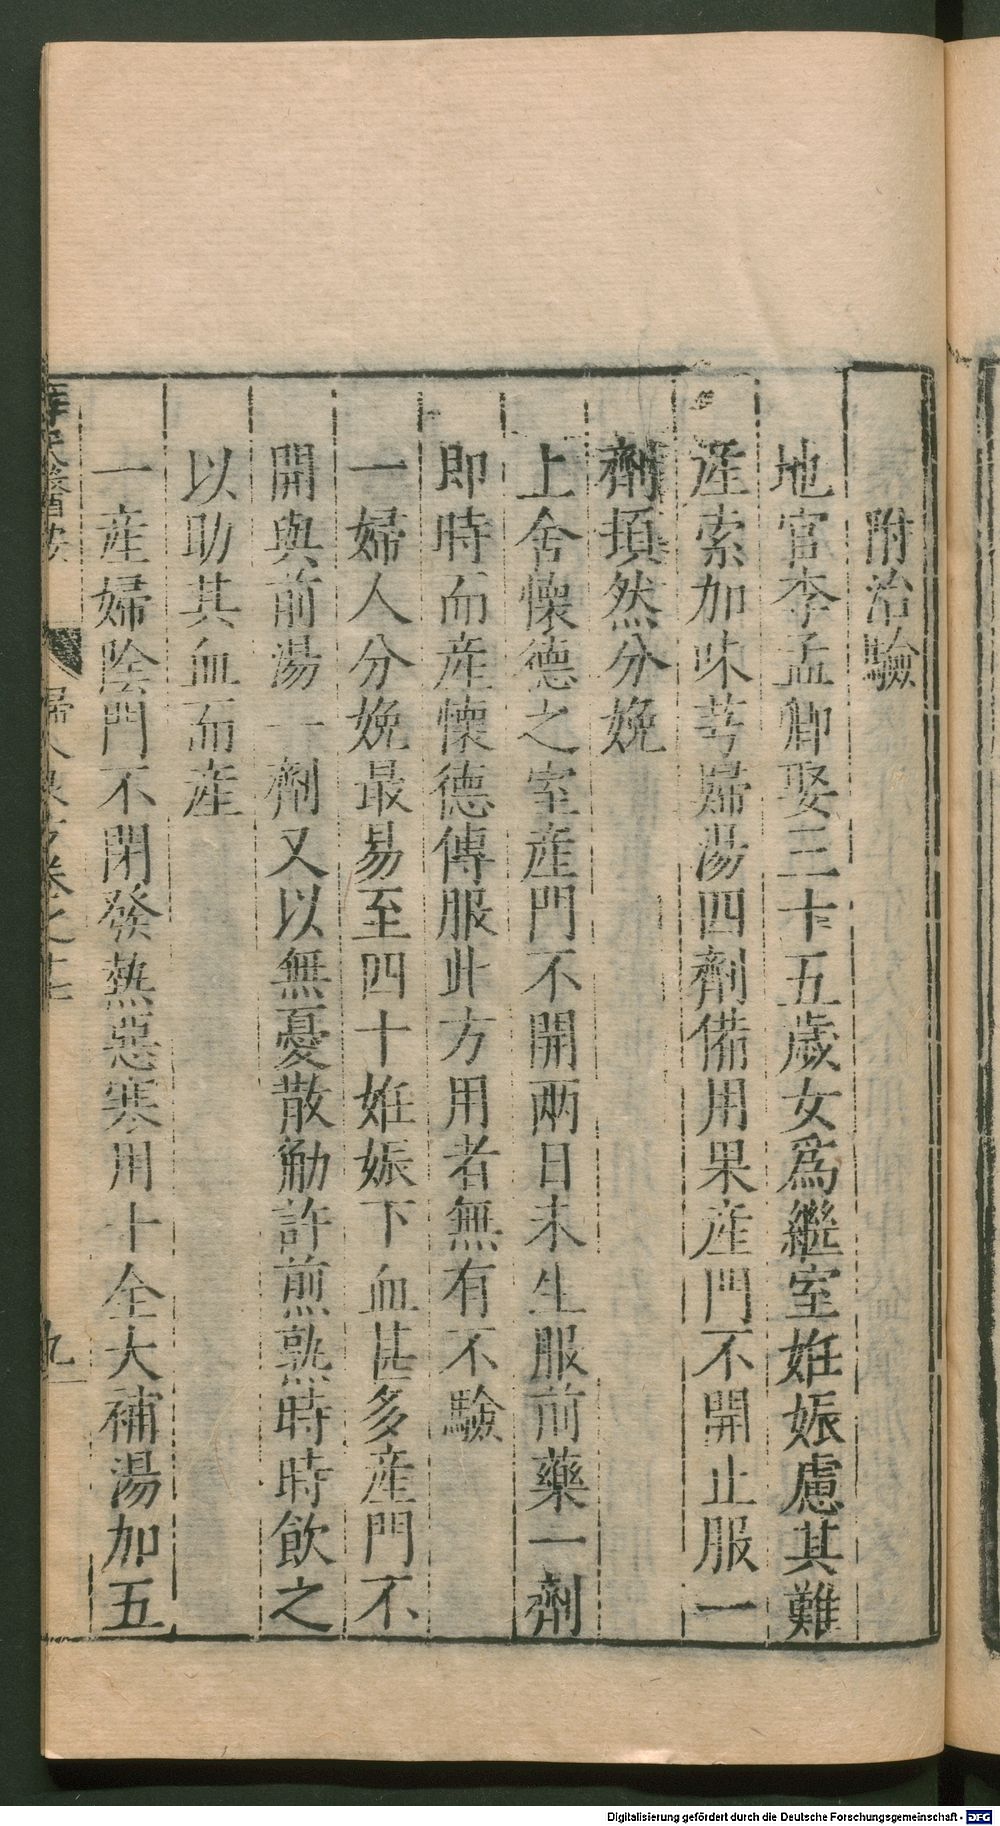 附治驗
地官李孟卿娶三十五歲女爲繼室姙娠慮其難
産索加味芎歸湯四劑備用果産門不開止服一
劑頃然分娩
上舍懷德之室産門不開兩日未生服前藥一劑
即時而産懷德傳服此方用者無有不驗
一婦人分娩最易至四十姙娠下血甚多産門不
開與前湯一劑又以無憂散觔許煎熟時時飲之
以助其血而産
一産婦陰門不閉發熱惡寒用十全大補湯加五
薛氏醫按
婦人良方卷之十七
九
Digitalisierung gefördert durch die Deutsche Forschungsgemeinschaft - DFG